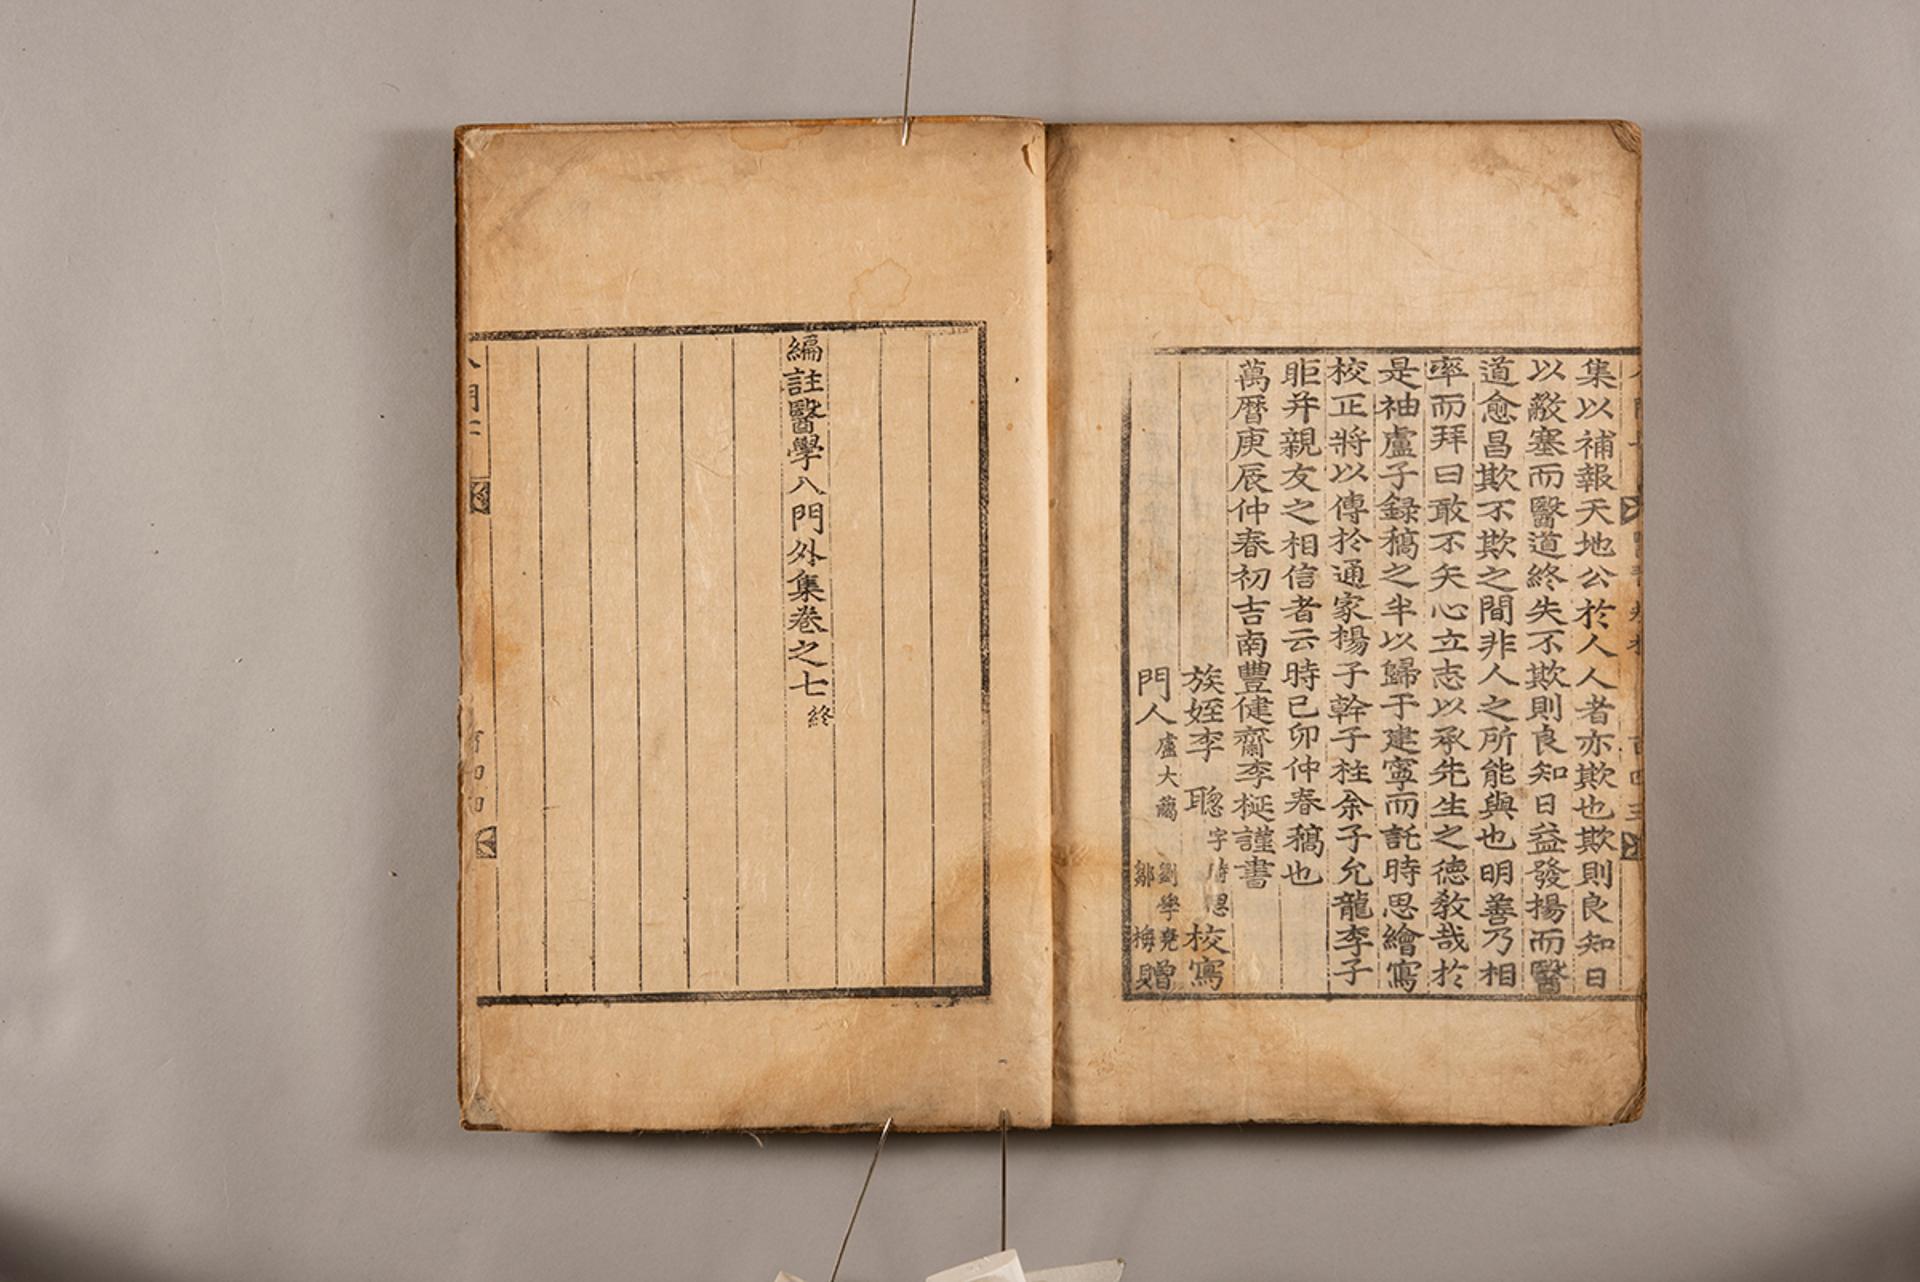 集以補報天地公於人人者亦欺也欺則良知日
以蔽塞而醫道終失不欺則良知日益發揚而醫
道愈昌欺不欺之間非人之所能與也明善乃相
率而拜曰敢不矢心立志以承先生之德敎哉於
是袖盧子録稿之半以歸于建寧而託時思繪寫
校正將以傳於通家楊子幹子柱余子允龍李子
眂并親友之相信者云時己卯仲春稿也
萬曆庚辰仲春初吉南豐健齋李梴謹書
族姪李聰字時思校寫
門人盧大
劉學堯
鄒梅贈
編註醫學八門外集卷之七終